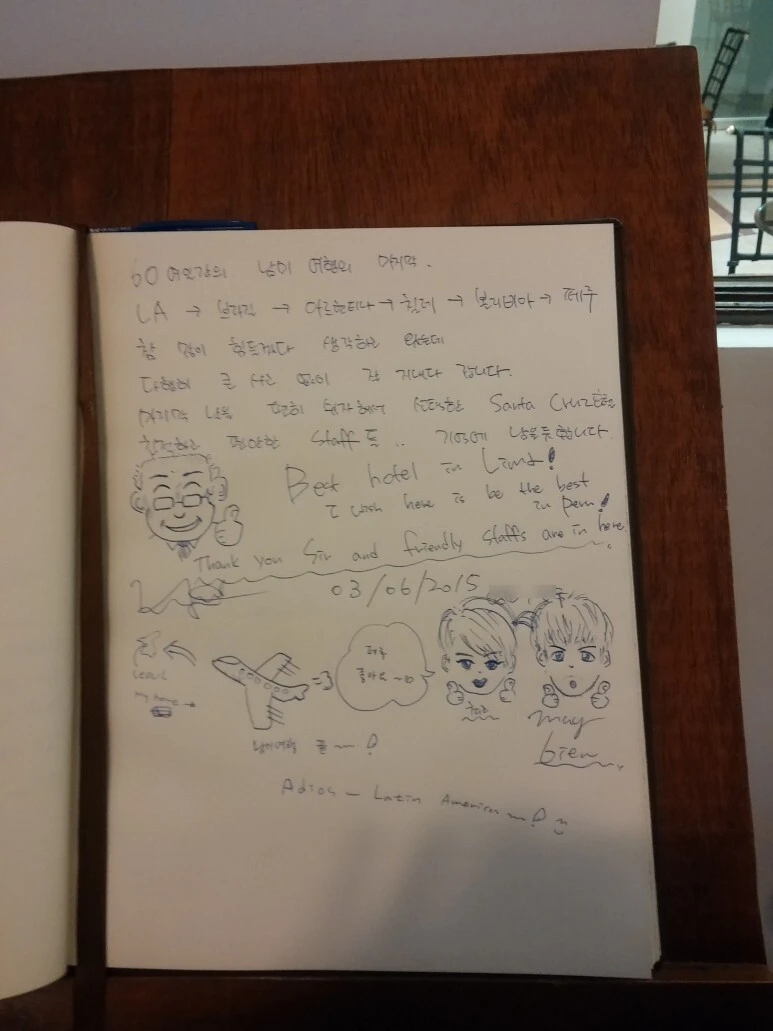 60여일간의 남미 여행의 마지막.
LA → 브라질 → 아르헨티나 → 칠레 → 볼리비아 → 페루
참 많이 힘들겠다 생각하고 왔는데
다행히 큰 사고 없이 잘 지내다 갑니다.
마지막 날을 편히 쉬자해서 선택한 Santa Cruz호텔
친절하고 편안한 staff들.. 기억에 남을듯합니다.
Best hotel in Lima!
I wish here is be the best
in Peru!
Thank you Sir and friendly staffs are in here.
03/06/2015
Seoul
my home →
페루
좋아요~
muy
bien
남미여행 끝~!
Adios - Latin America ~!